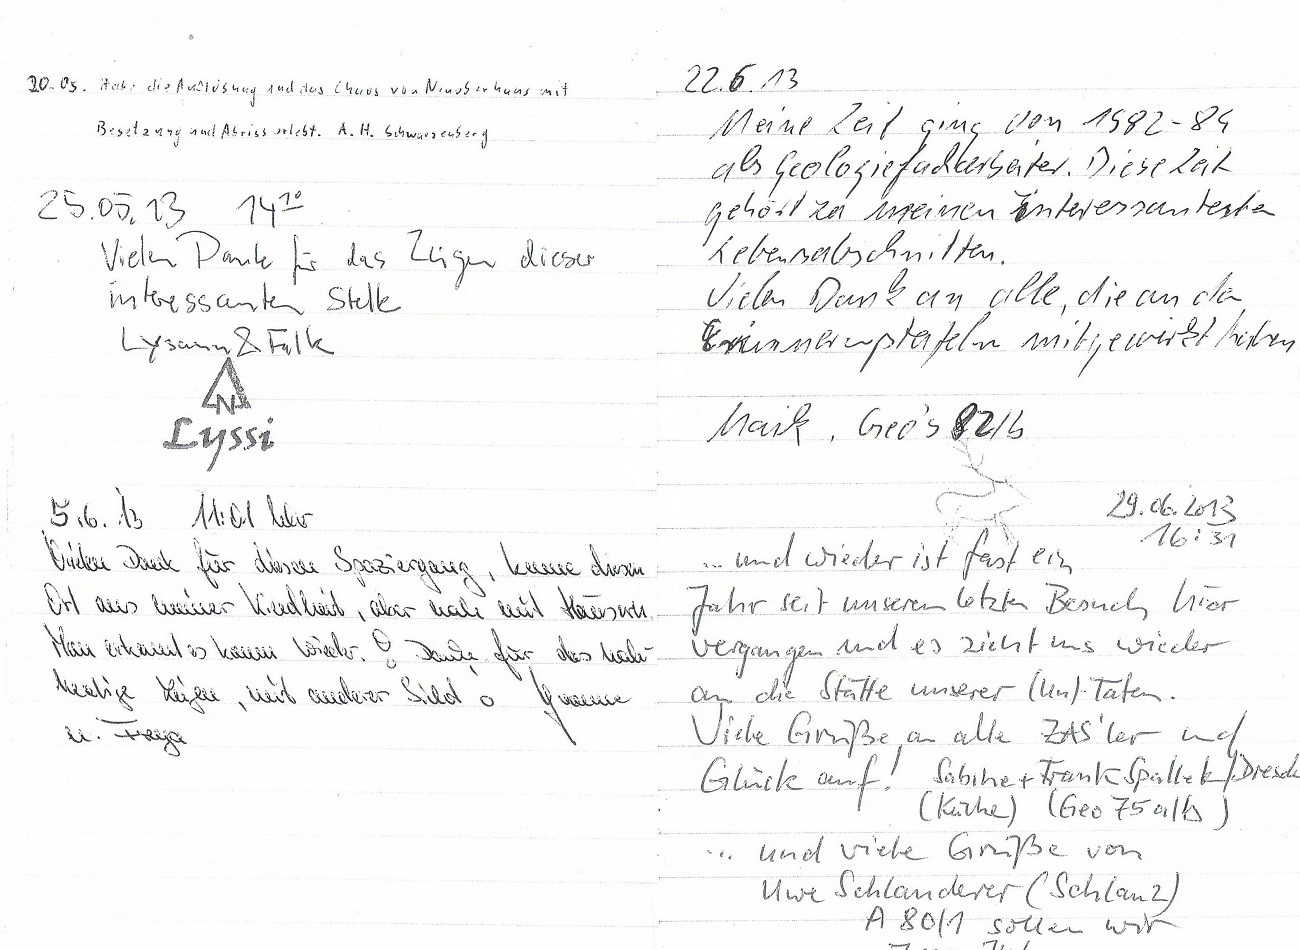 20.05. Habe die Auflösung und das Chaos von Neuoberhaus mit
Besetzung und Abriss erlebt. A. H. Schwarzenberg
25.05.13 14¹⁰
Vielen Dank für das Zeigen dieser
interessanten Stelle
Lysann & Falk
N
Lyssi
5.6.13 11:01 Uhr
Vielen Dank für diesen Spaziergang, kenne diesen
Ort aus meiner Kindheit, aber noch mit Häusern.
Man erkennt es kaum wieder. Danke für das
heutige Zeigen, mit anderer
u. Freya
22.6.13
Meine Zeit ging von 1982-84
als Geologiefacharbeiter. Diese Zeit
gehört zu meinen interessantesten
Lebensabschnitten.
Vielen Dank an alle, die an den
Erinnerungstafeln mitgewirkt haben
Maik, Geo's 82/b
29.06.2013
16:31
... und wieder ist fast ein
Jahr seit unserem letzten Besuch hier
vergangen und es zieht uns wieder
an die Stätte unserer (Un)-Taten.
Viele Grüße an alle ZAS'ler und
Glück auf! Sabine + Frank Spallek/Dresd
(Küche) (Geo 75 a/b)
... und viele Grüße von
Uwe Schlanderer (Schlanz)
A 80/1 sollen wir